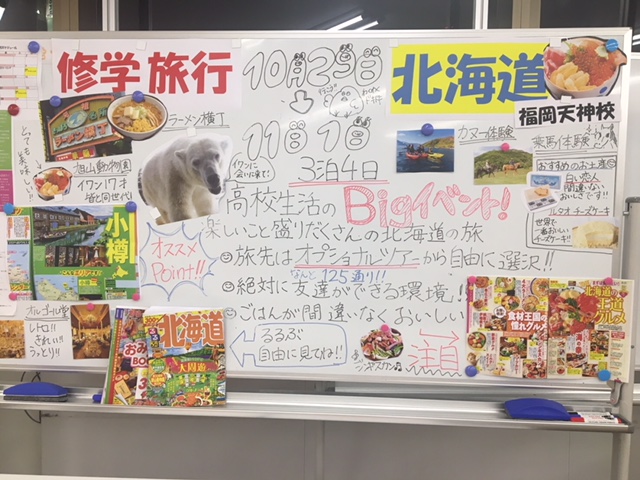 修学旅行
10月29日
北海道
福岡天神校
ラーメン横丁
とっても美味しい!!
旭山動物園
イワン17才
皆と同世代
イワンに
会いに来て
11月1日
3泊4日
カヌー体験
乗馬体験
おすすめのお土産
白い恋人
間違いない
おいしさです!!
ルタオチーズケーキ
世界で
一番おいしい
チーズケーキ!!
高校生活のBigイベント!
楽しいこと盛りだくさんの北海道の旅
オススメ
Point!!
旅先はオプショナルツアーから自由に選択!!
なんと125通り!!
絶対に友達ができる環境!!
ごはんが間違いなくおいしい
小樽
オルゴール堂
レトロ!!
きれい!!
うっとり!!
北海道
大周遊
るるぶ
自由に見てね!!
ジンギスカン♫
注目
食材王国の
憧れグルメ
北海道の
王道
グルメ